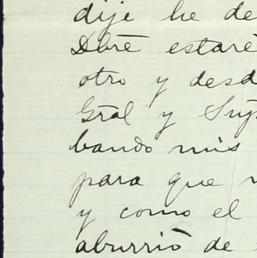 dije he de
Dbre estaré
otro y desd
Gral y Sup
bando mis
para que
y como el
aburrió de